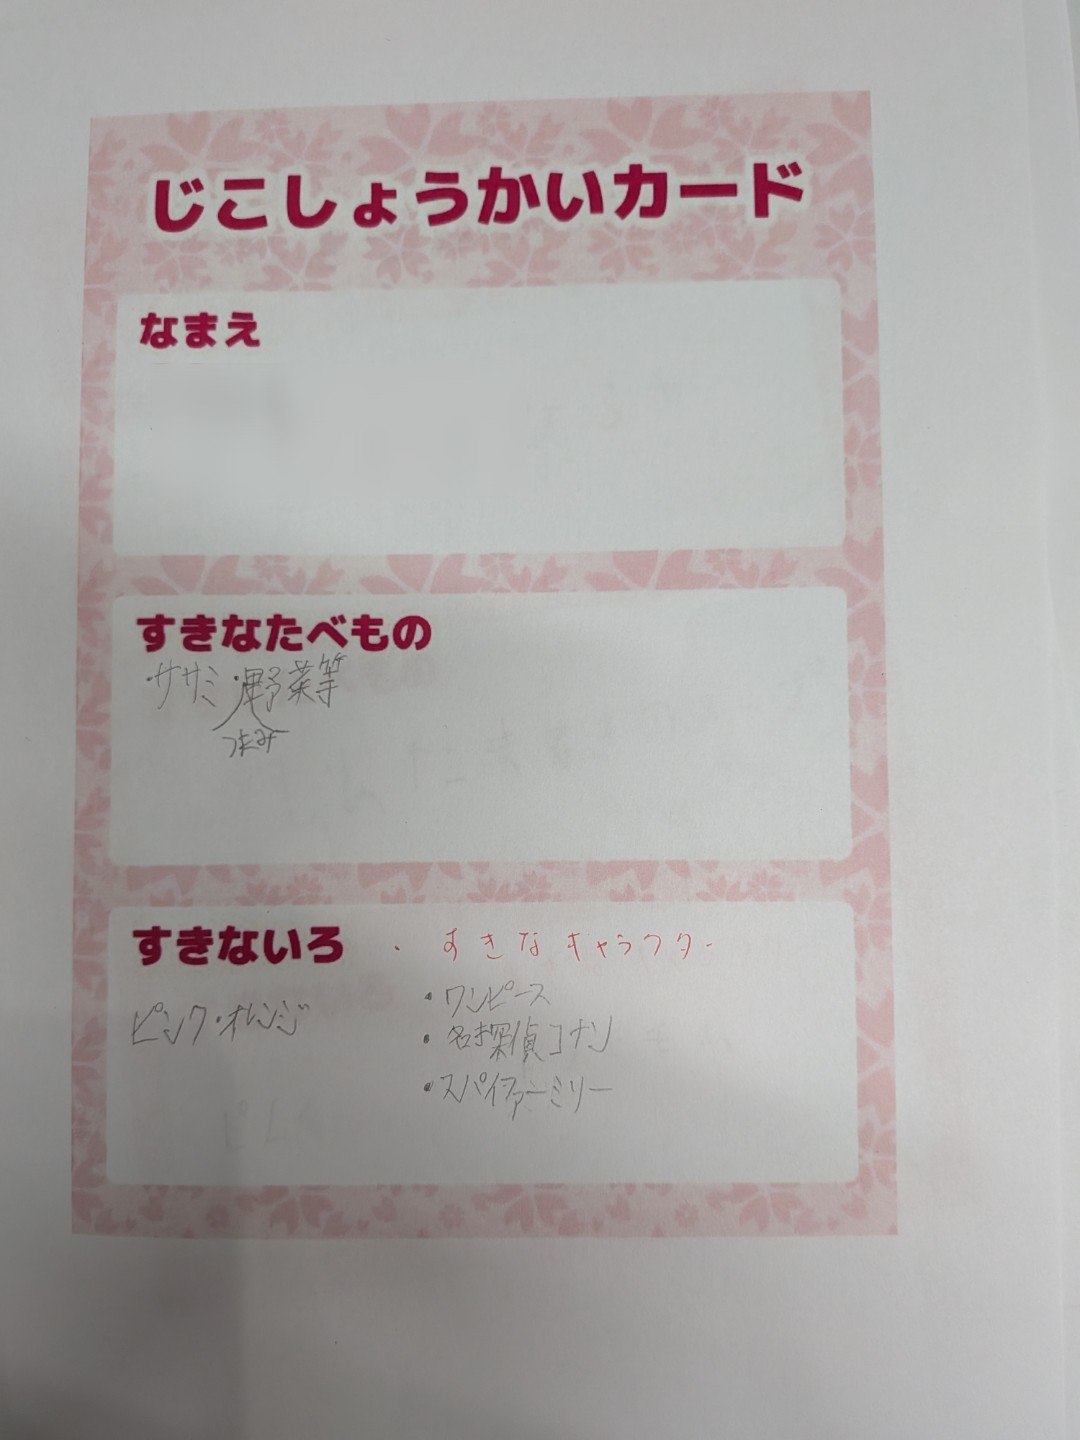 じこしょうかいカード
なまえ
すきなたべもの
・ササミ・野菜等
つまみ
すきないろ ・すきなキャラクター
ピンク・オレンジ
・ワンピース
・名探偵コナン
・スパイファーミリー